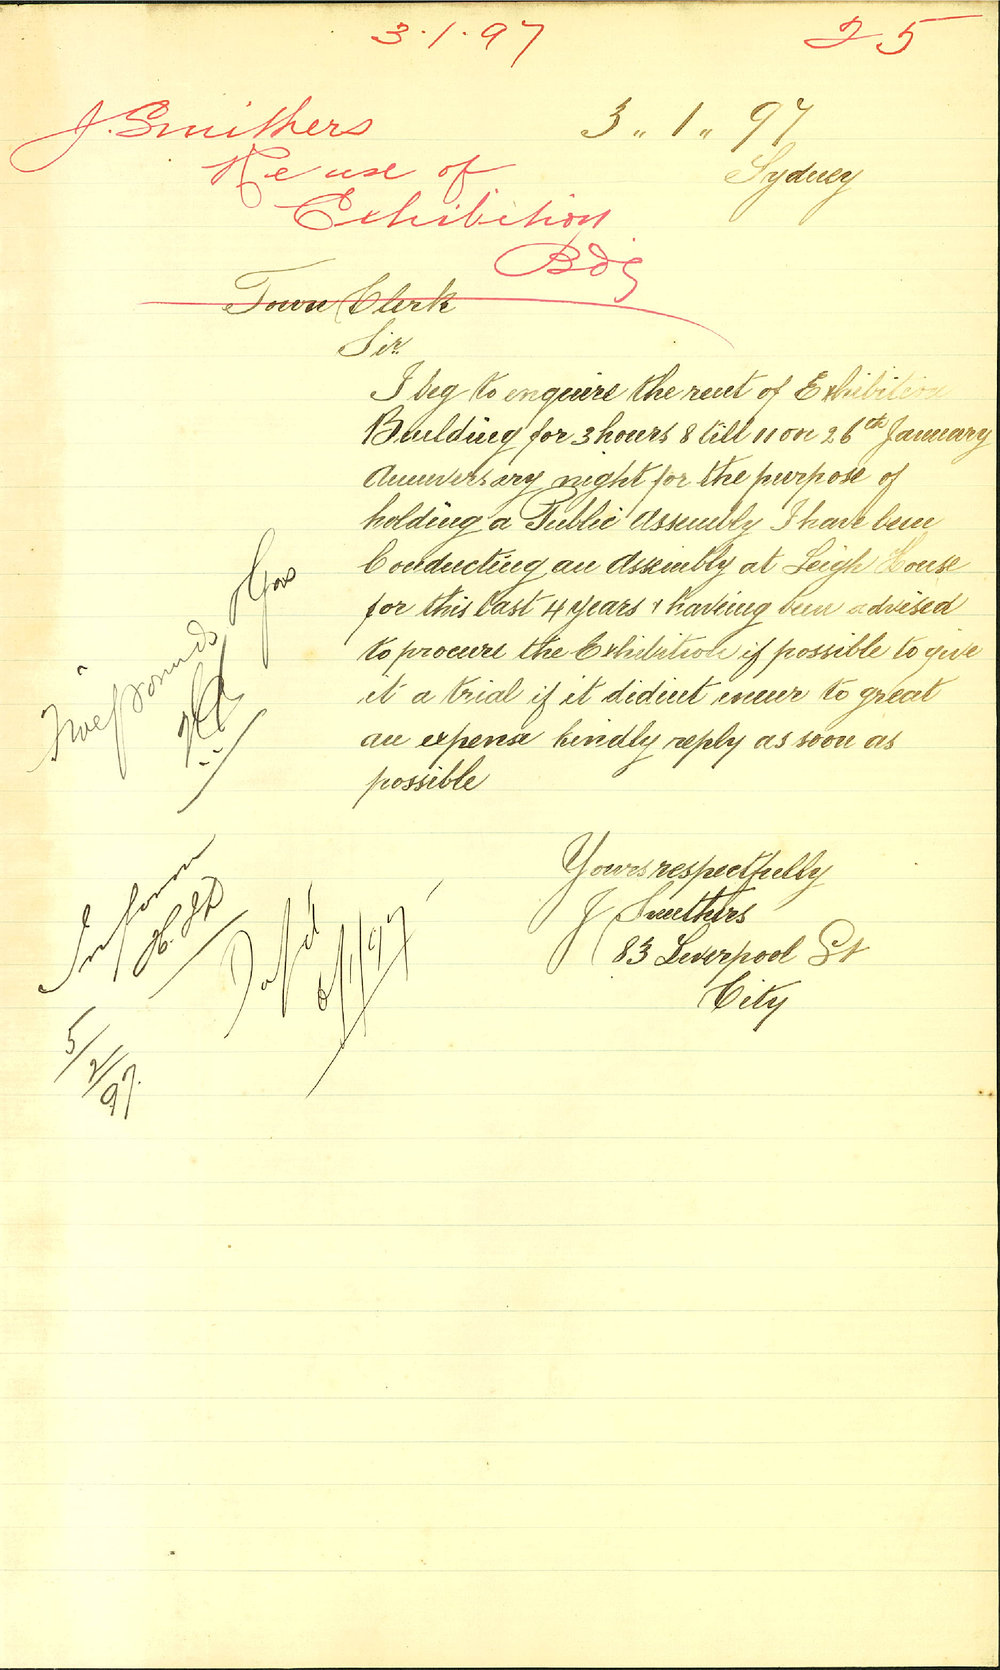 3.1.97
25
J. Smithers
Re use of
Exhibition
Bdg
3 " 1 " 97
Sydney
Town Clerk
Sir
I beg to enquire the rent of Exhibition
Building for 3 hours 8 till 11 on 26th January
Anniversary night for the purpose of
holding a Public Assembly I have been
Conducting an Assembly at Leigh House
for this last 4 years & having been advised
to procure the Exhibition if possible to give
it a trial if it didient incur to great
an expense kindly reply as soon as
possible
Yours respectfully
J Smithers
83 Liverpool St
City
Five pounds & Gas
Inform
5/2/97
6/1/97